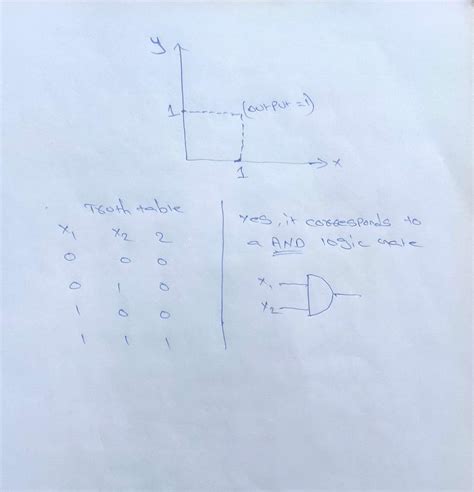 y
1 (output=1)
x
1
Truth table
x1 x2 2
0 0 0
0 1 0
1 0 0
1 1 1
Yes, it corresponds to
a AND logic gate
x1
x2